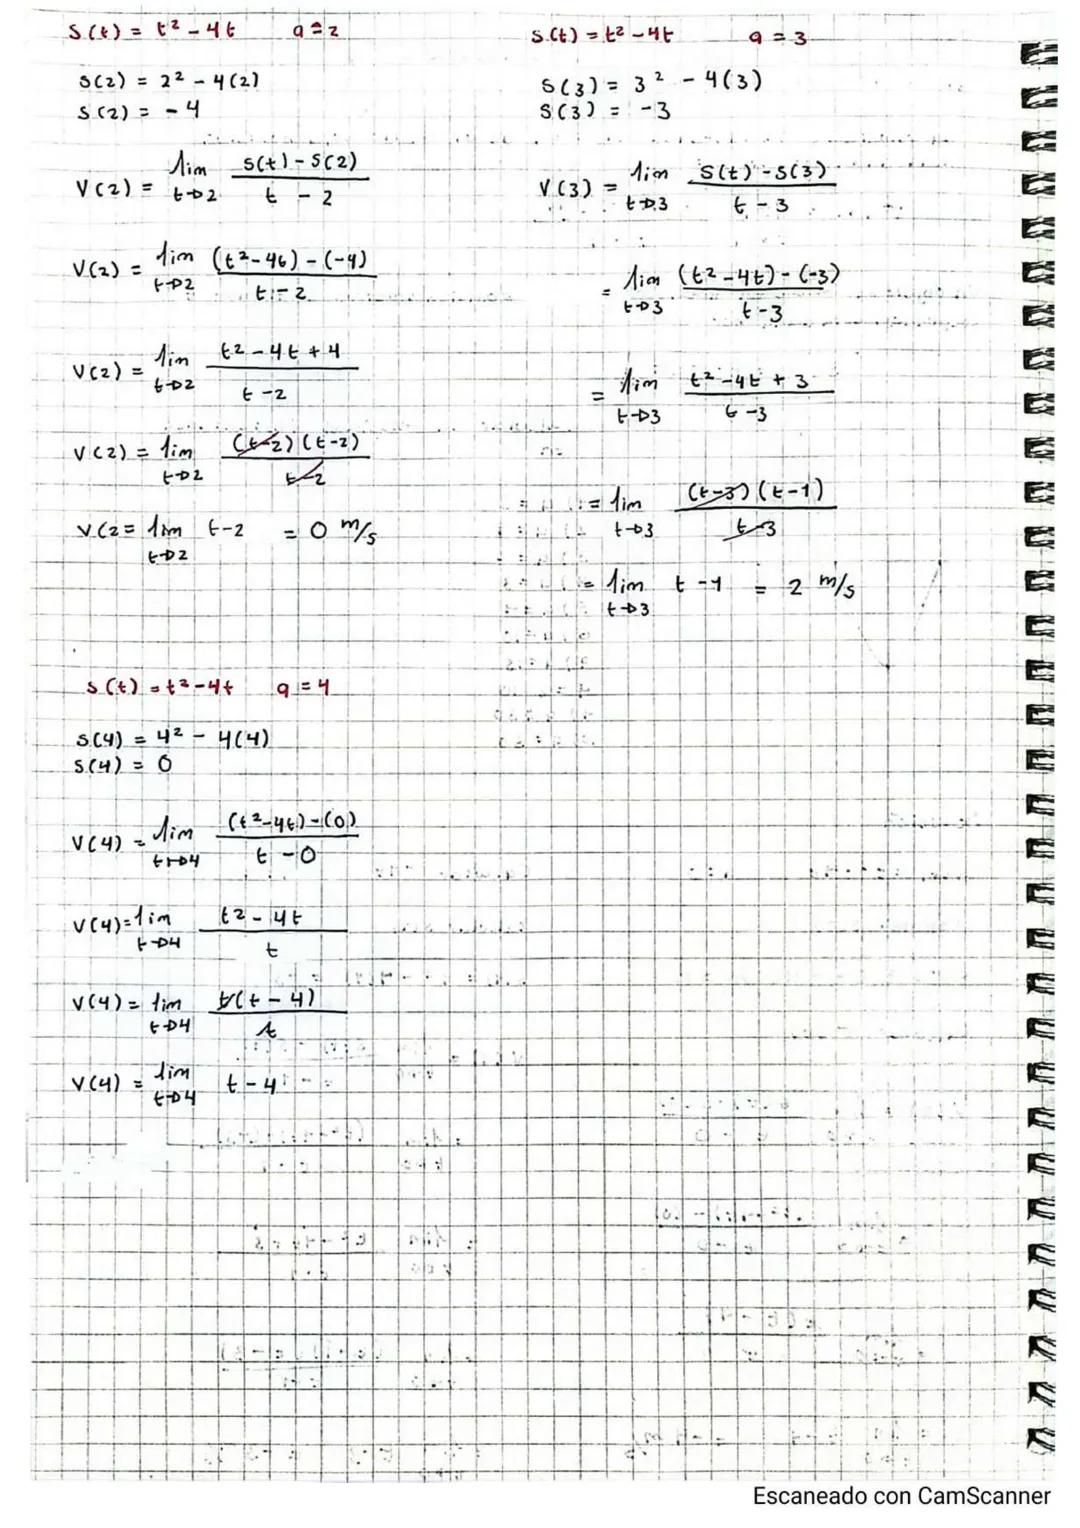 S(t) = t² - 4t a = 2
S(2) = 2² - 4(2)
S(2) = -4
V(2) = lim t→2 S(t) - S(2) / t - 2
V(2) = lim t→2 (t² - 4t) - (-4) / t - 2
V(2) = lim t→2 t² - 4t + 4 / t - 2
V(2) = lim t→2 (t-2)(t-2) / t-2
V(2 = lim t→2 t-2 = 0 m/s
S(t) = t² - 4t a = 3
S(3) = 3² - 4(3)
S(3) = -3
V(3) = lim t→3 S(t) - S(3) / t - 3
= lim t→3 (t² - 4t) - (-3) / t - 3
= lim t→3 t² - 4t + 3 / t - 3
= lim t→3 (t-3)(t-1) / t-3
= lim t→3 t - 1 = 2 m/s
S(t) = t² - 4t a = 4
S(4) = 4² - 4(4)
S(4) = 0
V(4) = lim t→4 (t² - 4t) - (0) / t - 0
V(4) = lim t→4 t² - 4t / t
V(4) = lim t→4 t(t - 4) / t
V(4) = lim t→4 t - 4
Escaneado con CamScanner